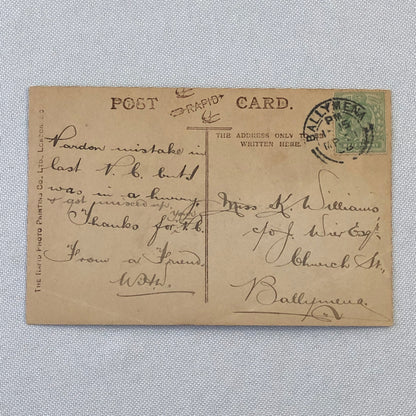 POST CARD.
RAPID
THE ADDRESS ONLY TO
WRITTEN HERE.
THE RAPID PHOTO PRINTING CO., LTD., LONDON, E.C.
BALLYMENA
PM
Pardon mistake in
last P.C. but I
was in a hurry
& got mixed up.
Thanks for P.C.
From a Friend
Miss K. Williams
c/o J. Wier Esqr.
Church St.,
Ballymena.